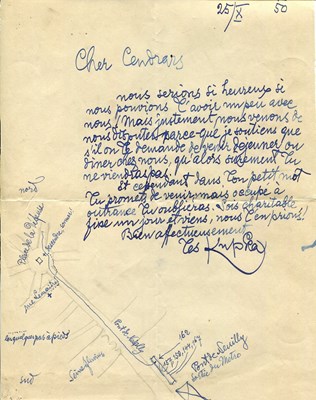 25/X 50
Cher Cendrars
nous serions si heureux si
nous pouvions t'avoir un peu avec
nous! Mais justement nous venons de
nous disputer parce que je soutiens que
s'il on te demande de venir déjeuner ou
dîner chez nous, qu'alors sûrement tu
ne viendras pas.
et cependant dans ton petit mot
tu promets de venir mais occupé à
outrance tu oublieras. Sois charitable
fixe un jour et viens, nous t'en prions!
Bien affectueusement
les Kupka
nord
Place de la Défense
rue Lemaître
Pont de Neuilly
162
Pont de Neuilly
sortie du Metro
sud